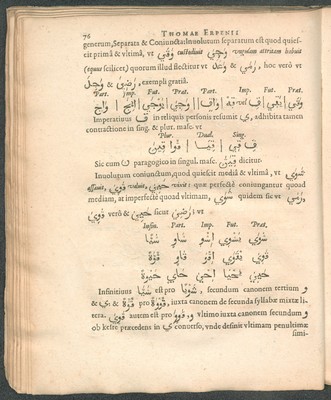 76 THOMAE ERPENII
generum, Separata & Coniuncta: Inuolutum separatum est quod quies-
cit primâ & vltimâ, vt وَقَىَ custodiuit وَجِىَ vngulam attritam habuit
(equus scilicet) quorum illud flectitur vt وَعَدَ & رَمَىَ, hoc verò vt
وَجِلَ & رَضِىَ, exempli gratiâ.
Part. Imp. Fut. Præt. Part. Imp. Fut. Præt.
وَقَىَ يَقِى قِ
Imperatiuus قِ in reliquis personis resumit ى, adhibita tamen
contractione in sing. & plur. masc. vt
Plur. Dual. Sing.
قِ قِى قِيَا قُوا قِينَ
Sic cum ن paragogico in singul. masc. قِيَنَّ dicitur.
Inuolutum coniunctum, quod quiescit mediâ & vltimâ, vt شَوَىَ
assauit, قَوِىَ valuit, حَيِىَ vixit: quæ perfectè coniungantur quoad
mediam, at imperfectè quoad vltimam, شَوَىَ quidem sic vt رَمَىَ,
قَوِىَ verò & حَيِىَ sicut رَضِىَ: vt
Infin. Part. Imp. Fut. Præt.
شَوَىَ يَشْوِى اِشْوِ شَاوٍ شَيًّا
قَوِىَ يَقْوَى اِقْوَ قَاوٍ قُوَّةٌ
حَيِىَ يَحْيَا اِحْىَ حَاىٍ حَيٰوةٌ
Infinitiuus شَيًّا est pro شَوْيًا, secundum canonem tertium و
& ى: & قُوَّةٌ pro قُوْوَةٌ, iuxta canonem de secunda syllabæ mixtæ li-
tera. قَوِىَ autem est pro قَوِوَ, vltimo iuxta canonem secundum و
ob kesre præcedens in ى conuerso, vnde desinit vltimam penultimæ
simi-